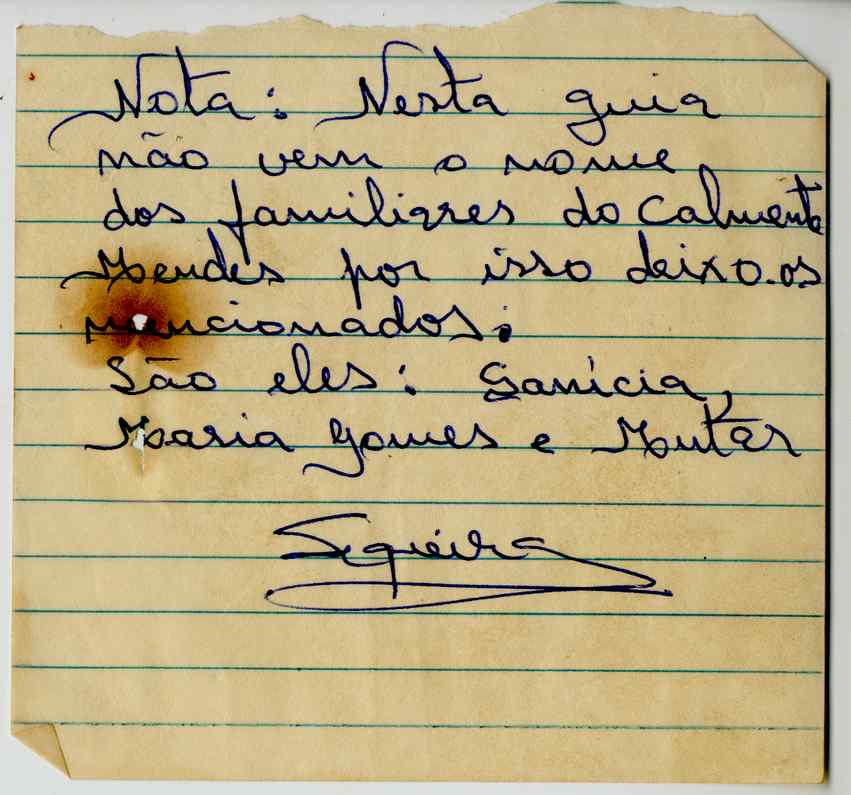 Nota: Nesta guia
não vem o nome
dos familiares do Calmente
Mendes por isso deixo-os
mencionados:
São eles: Sanícia,
Maria Gomes e Mutar
Sequeira